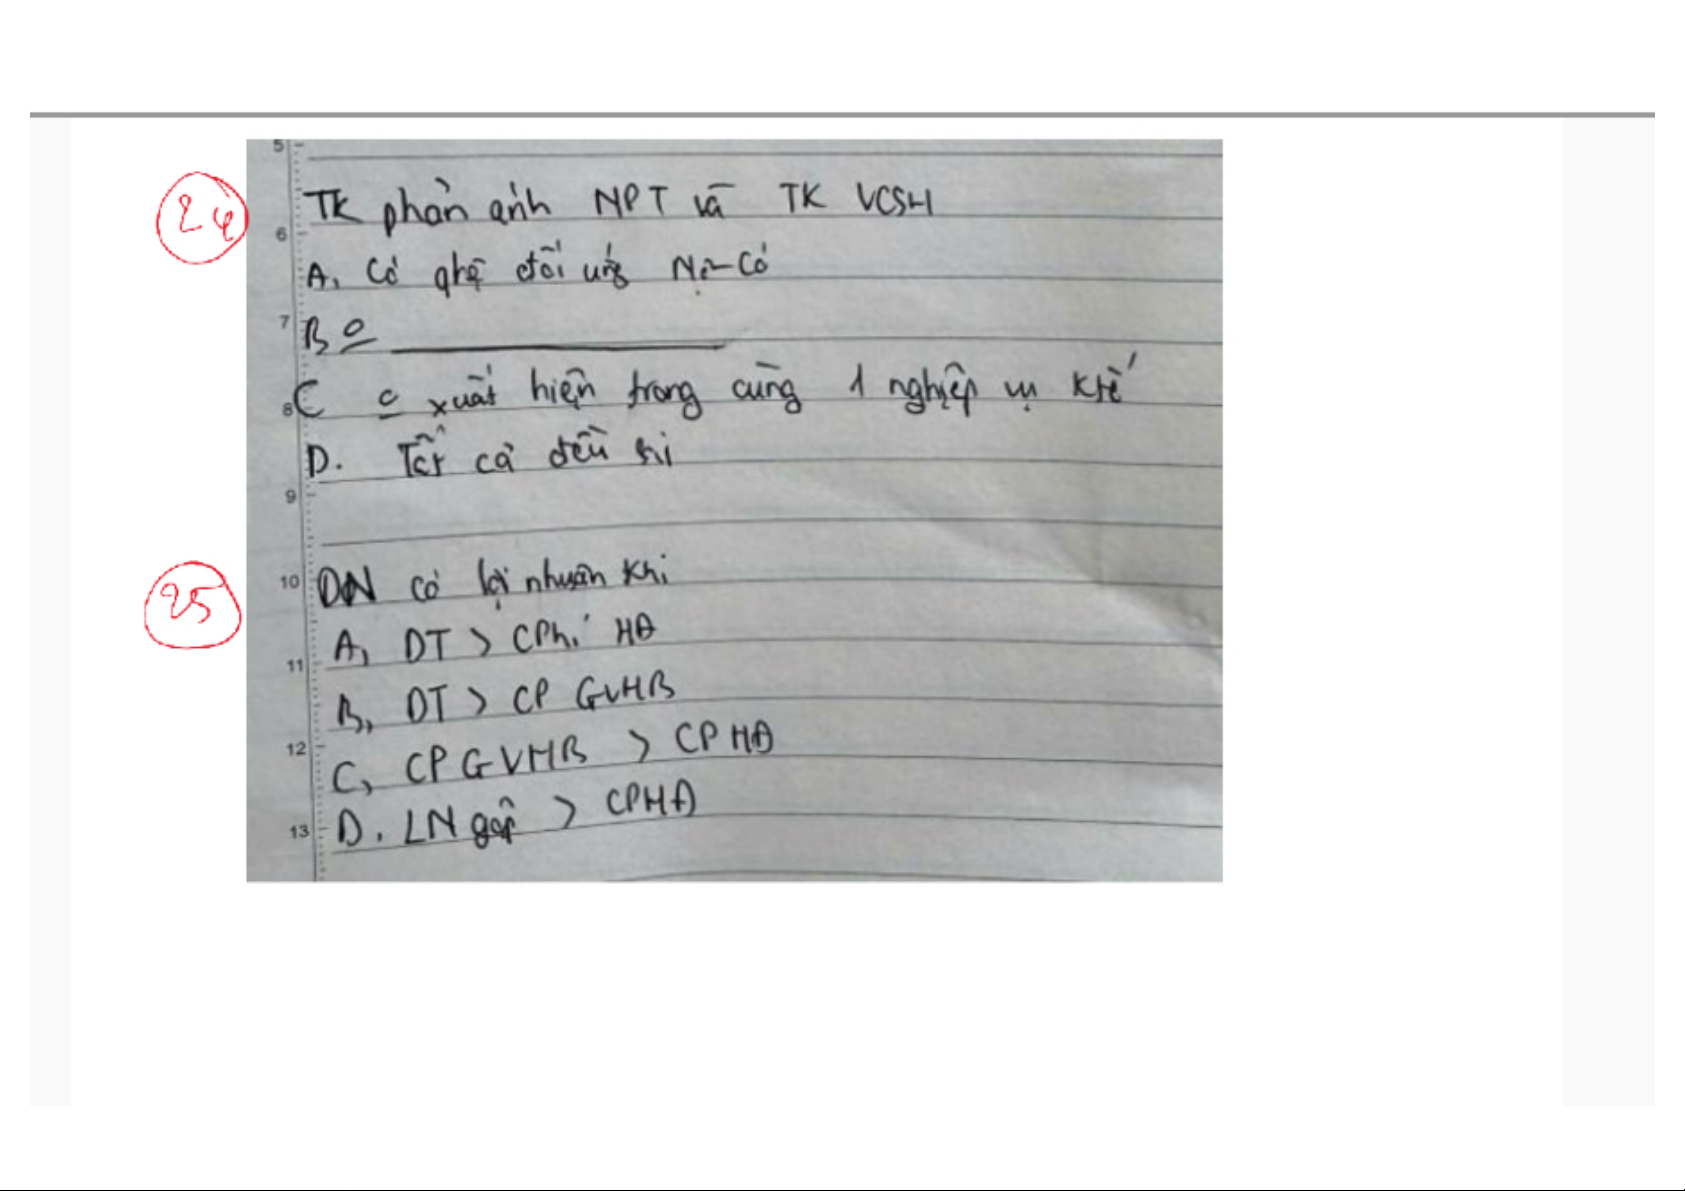 5
24
TK phản ánh NPT và TK VCSH
6
A, Có qhệ đối ứng Nợ-Có
7
B o
8
C o xuất hiện trong cùng 1 nghiệp vụ Ktế
D. Tất cả đều sai
9
25
10
DN có lợi nhuận khi
A, DT > CPhí HĐ
11
B, DT > CP GVHB
12
C, CP GVHB > CPHĐ
13
D. LN gộp > CPHĐ